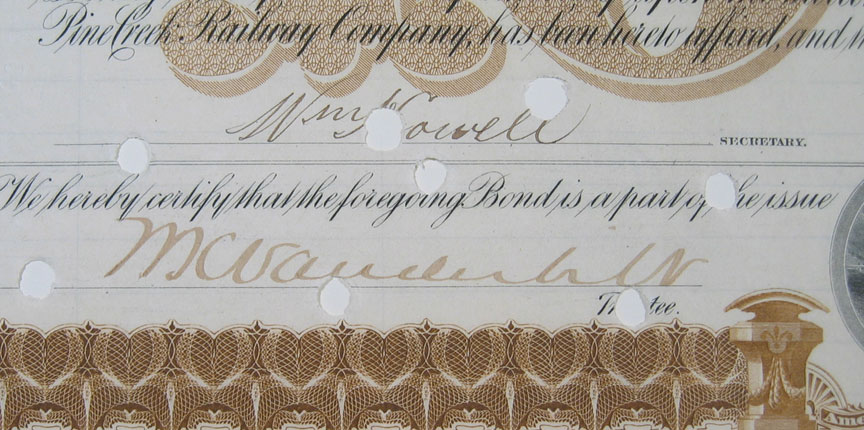 Pine Creek Railway Company, has been hereto affixed, and
Wm Howell
SECRETARY.
We hereby certify that the foregoing Bond is a part of the issue
Vanderbilt
Trustee.
Ame